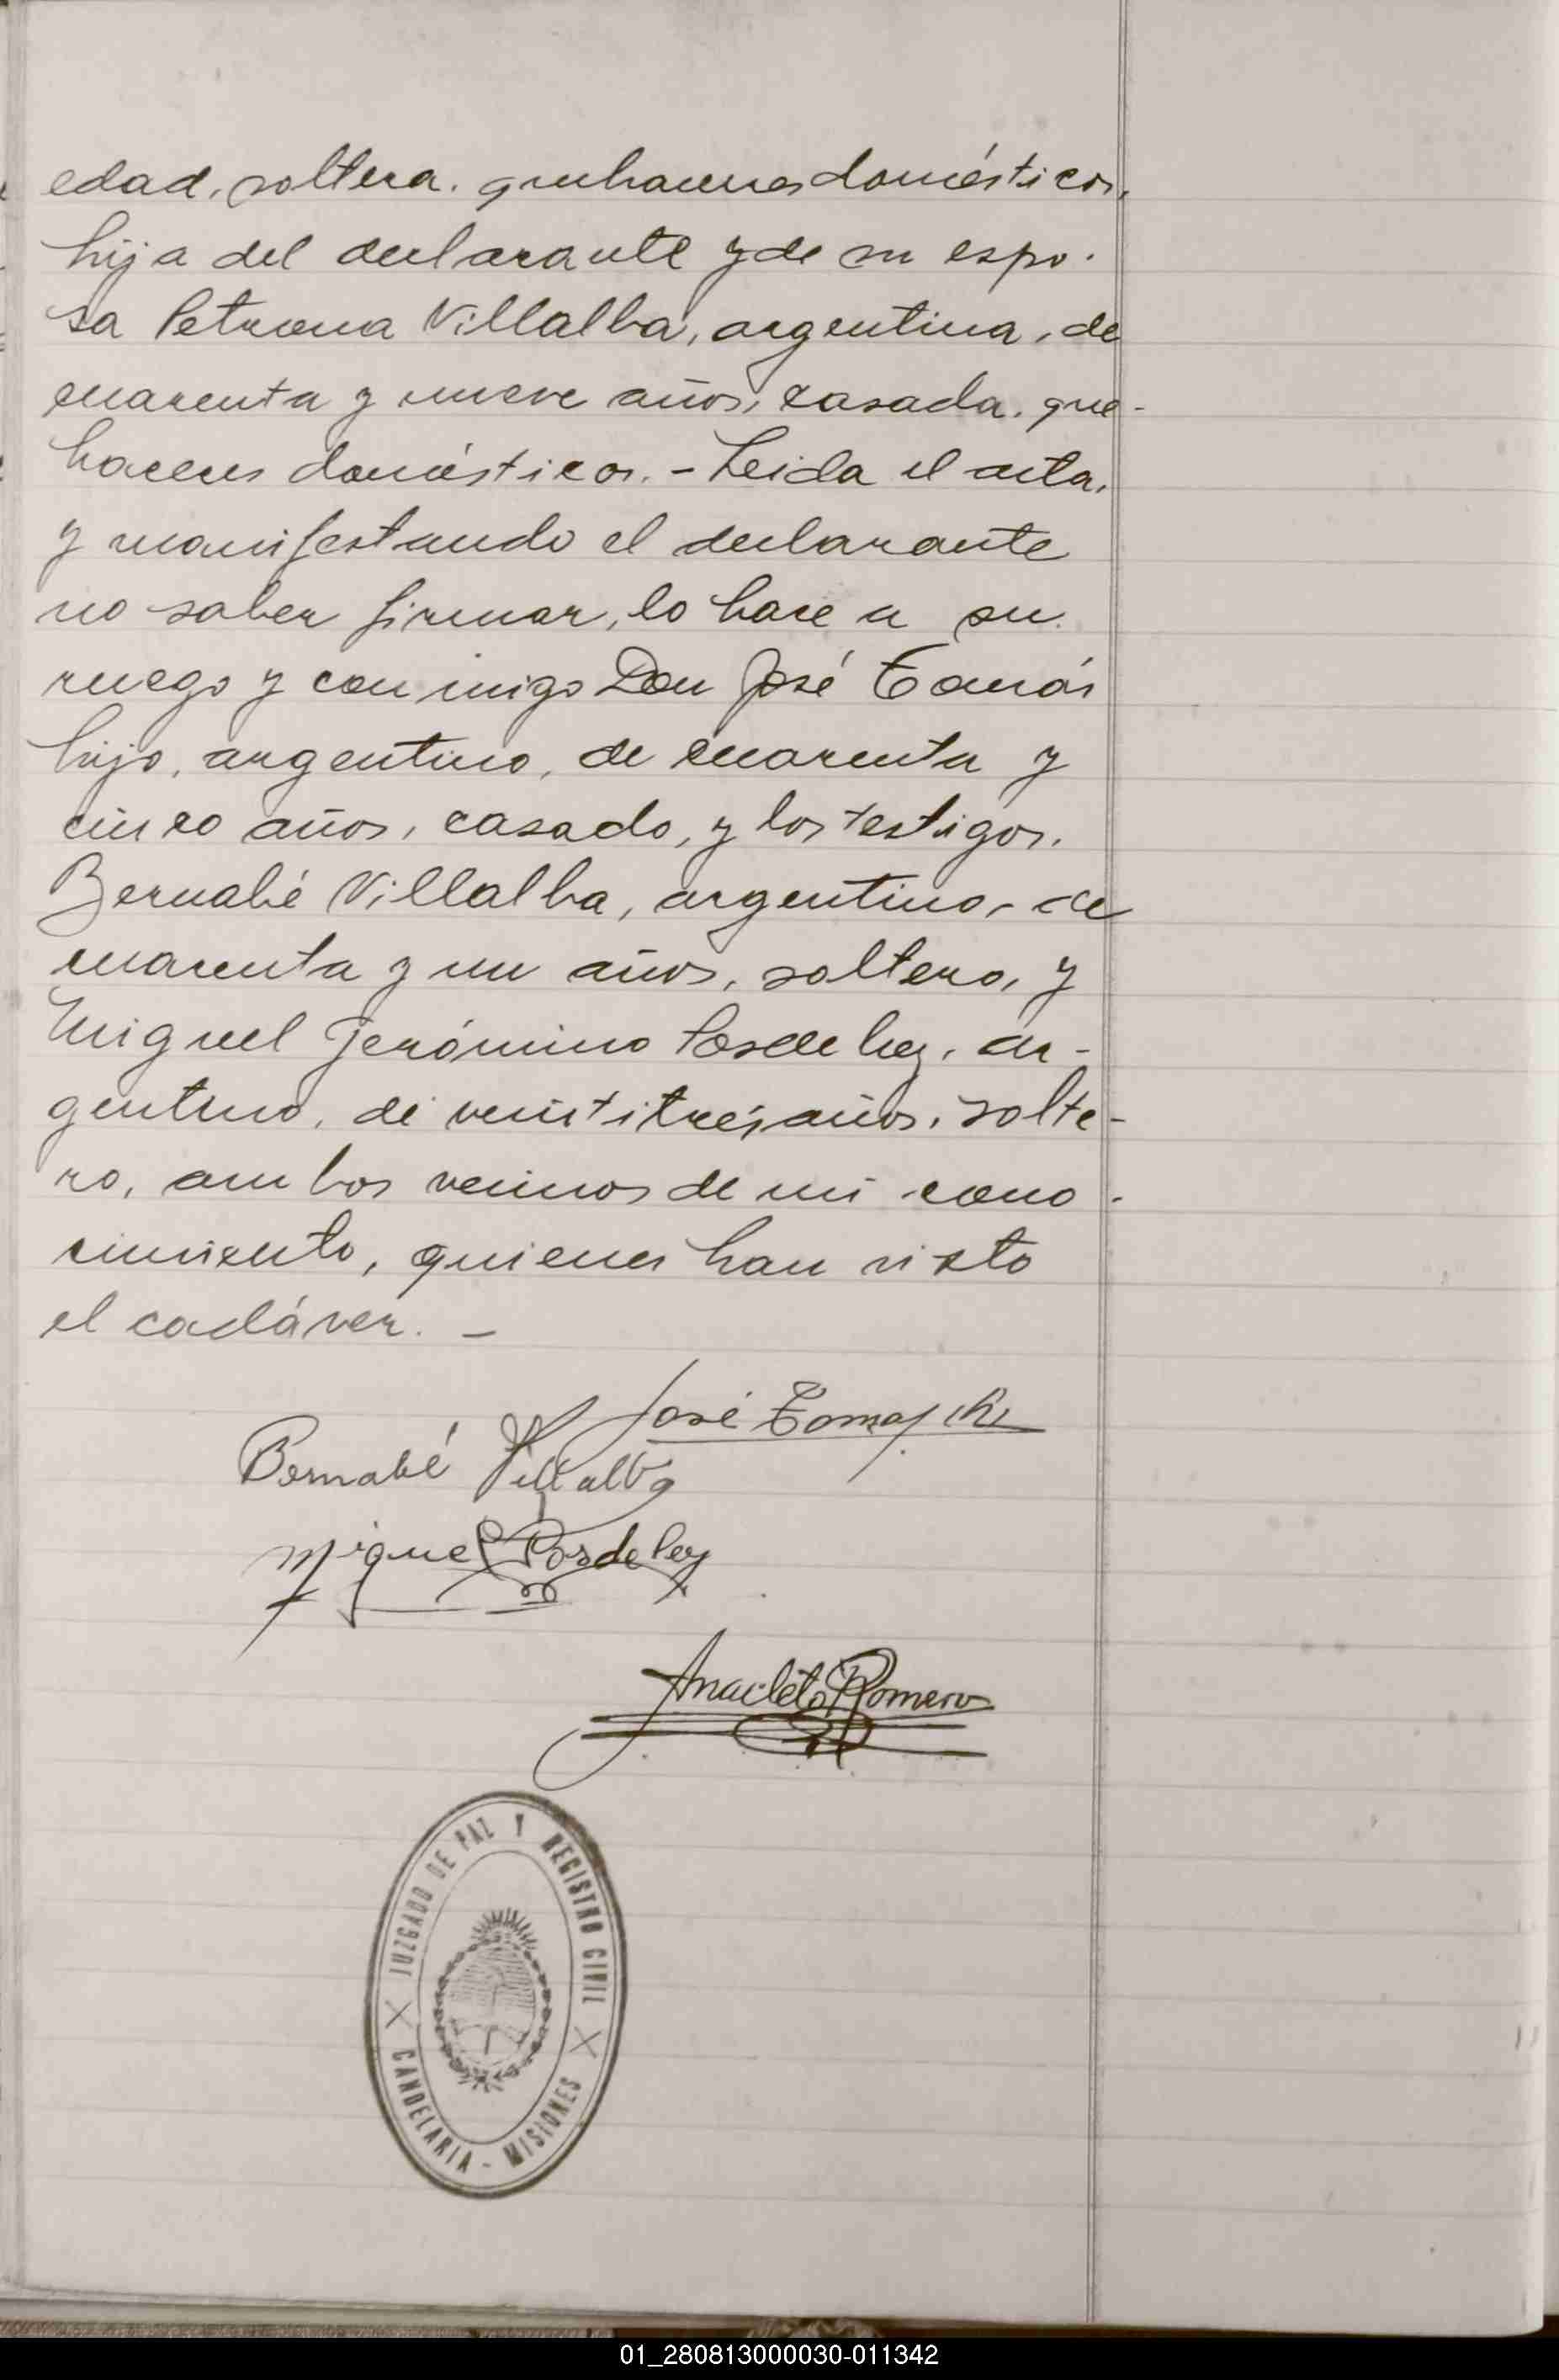 edad, soltera. quehaceres domésticos,
hija del declarante y de su espo-
sa Petrona Villalba, argentina, de
cuarenta y nueve años, casada, que-
haceres domésticos. - Leida el acta,
y manifestando el declarante
no saber firmar, lo hace a su
ruego y conmigo Don José Tomás
hijo, argentino, de cuarenta y
cinco años, casado, y los testigos.
Bernabé Villalba, argentino, de
cuarenta y un años, soltero, y
Miguel Jerónimo Posdeley, ar-
gentino, de veintitrés años, solte-
ro, ambos vecinos de mi cono-
cimiento, quienes han visto
el cadáver. -
José Tomas
Bernabé Villalba
Miguel Posdeley
Anacleto Romero
JUZGADO DE PAZ Y REGISTRO CIVIL
CANDELARIA - MISIONES
01_280813000030-011342